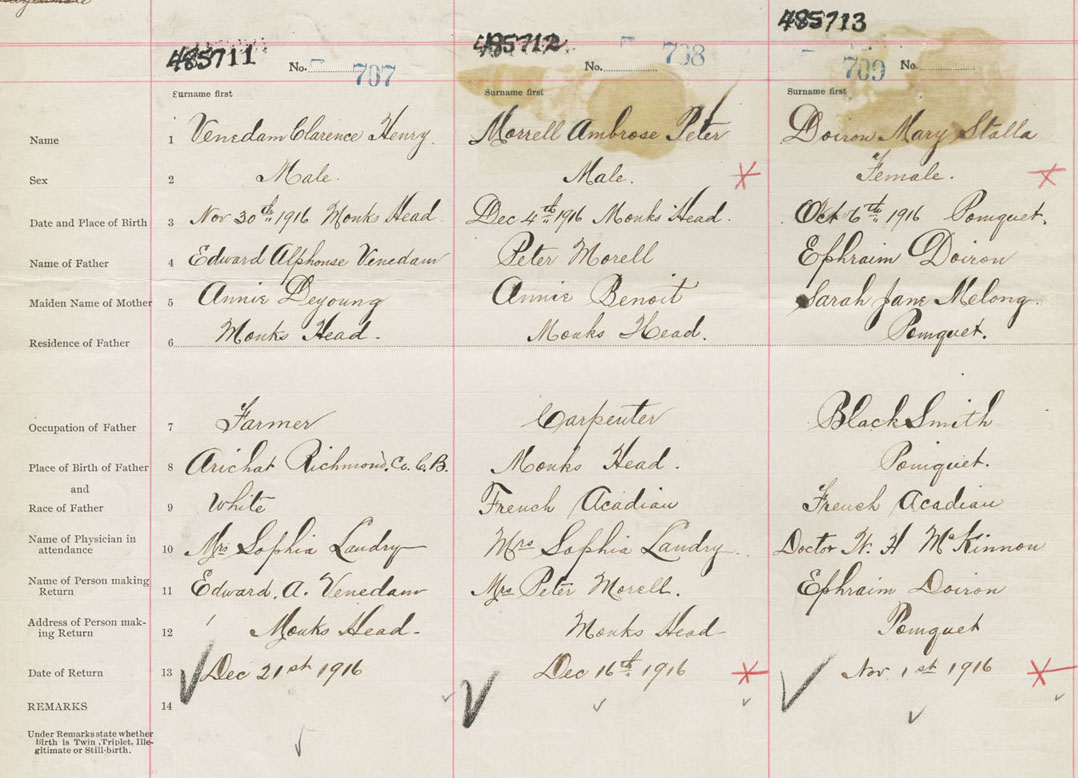 485711 485712 485713
No. 707 No. 708 709 No.
Surname first Surname first Surname first
Name 1 Venedam Clarence Henry. Morrell Ambrose Peter Doiron Mary Stalla
Sex 2 Male. Male. Female.
Date and Place of Birth 3 Nov 30th 1916 Monks Head. Dec 4th 1916 Monks Head. Oct 6th 1916 Pomquet.
Name of Father 4 Edward Alphonse Venedam Peter Morell Ephraim Doiron
Maiden Name of Mother 5 Annie Deyoung Annie Benoit Sarah Jane Melong.
Residence of Father 6 Monks Head. Monks Head. Pomquet.
Occupation of Father 7 Farmer Carpenter Black Smith
Place of Birth of Father 8 Arichat Richmond, Co. C.B. Monks Head. Pomquet.
and
Race of Father 9 White French Acadian French Acadian
Name of Physician in
attendance 10 Mrs Sophia Landry Mrs Sophia Landry Doctor W. H McKinnon
Name of Person making
Return 11 Edward. A. Venedam Mrs Peter Morell. Ephraim Doiron
Address of Person mak-
ing Return 12 Monks Head. Monks Head Pomquet
Date of Return 13 Dec 21st 1916 Dec 16th 1916 Nov. 1st 1916
REMARKS 14
Under Remarks state whether
birth is Twin, Triplet, Ille-
gitimate or Still-birth.